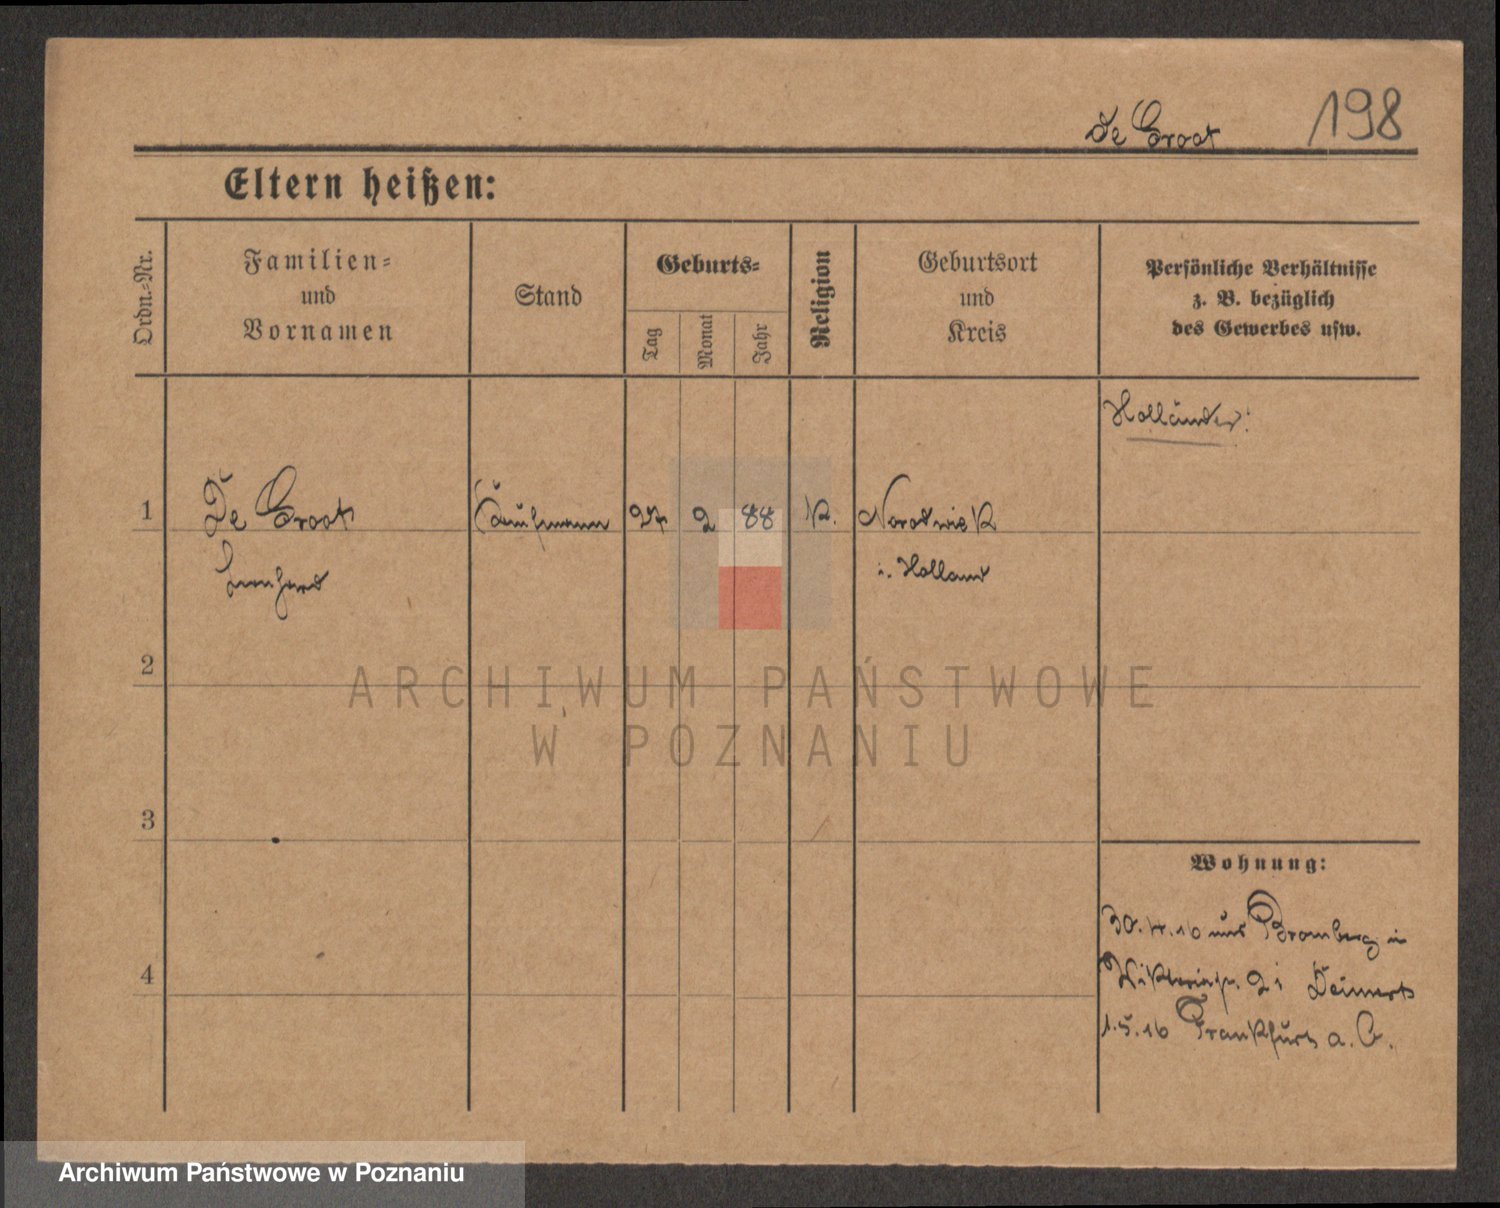 De Groot 198
Eltern heißen:
Ordn.-Nr.
Familien-
und
Vornamen
Stand
Geburts-
Tag
Monat
Jahr
Religion
Geburtsort
und
Kreis
Persönliche Verhältnisse
z. B. bezüglich
des Gewerbes usw.
Holländer!
1 De Groot Kaufmann 27 2 88 K. Norodwiek
i. Holland
2
3
4
Wohnung:
30.4.16 aus Bromberg in
Viktoriastr. 21
1.5.16 Frankfurt a. O.
ARCHIWUM PAŃSTWOWE
W POZNANIU
Archiwum Państwowe w Poznaniu